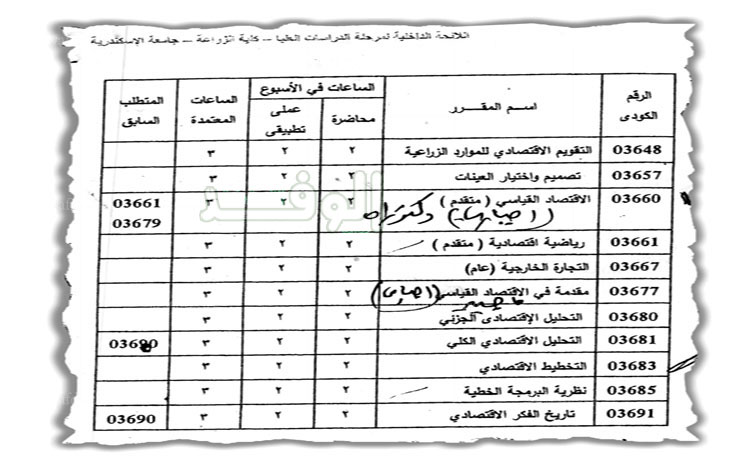 اللائحة الداخلية لمرحلة الدراسات العليا – كلية الزراعة – جامعة الإسكندرية
الرقم الكودى | اسم المقرر | الساعات في الأسبوع | الساعات المعتمدة | المتطلب السابق
محاضرة | عملى تطبيقى
03648 | التقويم الاقتصادي للموارد الزراعية | ٢ | ٢ | ٣
03657 | تصميم وإختيار العينات | ٢ | ٢ | ٣
03660 | الاقتصاد القياسي ( متقدم ) | ٢ | ٢ | ٣ | 03661
دكتوراه | 03679
03661 | رياضية اقتصادية ( متقدم ) | ٢ | ٢ | ٣
03667 | التجارة الخارجية (عام) | ٢ | ٢ | ٣
03677 | مقدمة في الاقتصاد القياسي | ٢ | ٢ | ٣
03680 | التحليل الإقتصادى الجزئي | ٢ | ٢ | ٣
03681 | التحليل الاقتصادي الكلي | ٢ | ٢ | ٣ | 03690
03683 | التخطيط الاقتصادي | ٢ | ٢ | ٣
03685 | نظرية البرمجة الخطية | ٢ | ٢ | ٣
03691 | تاريخ الفكر الاقتصادي | ٢ | ٢ | ٣ | 03690
الوفد